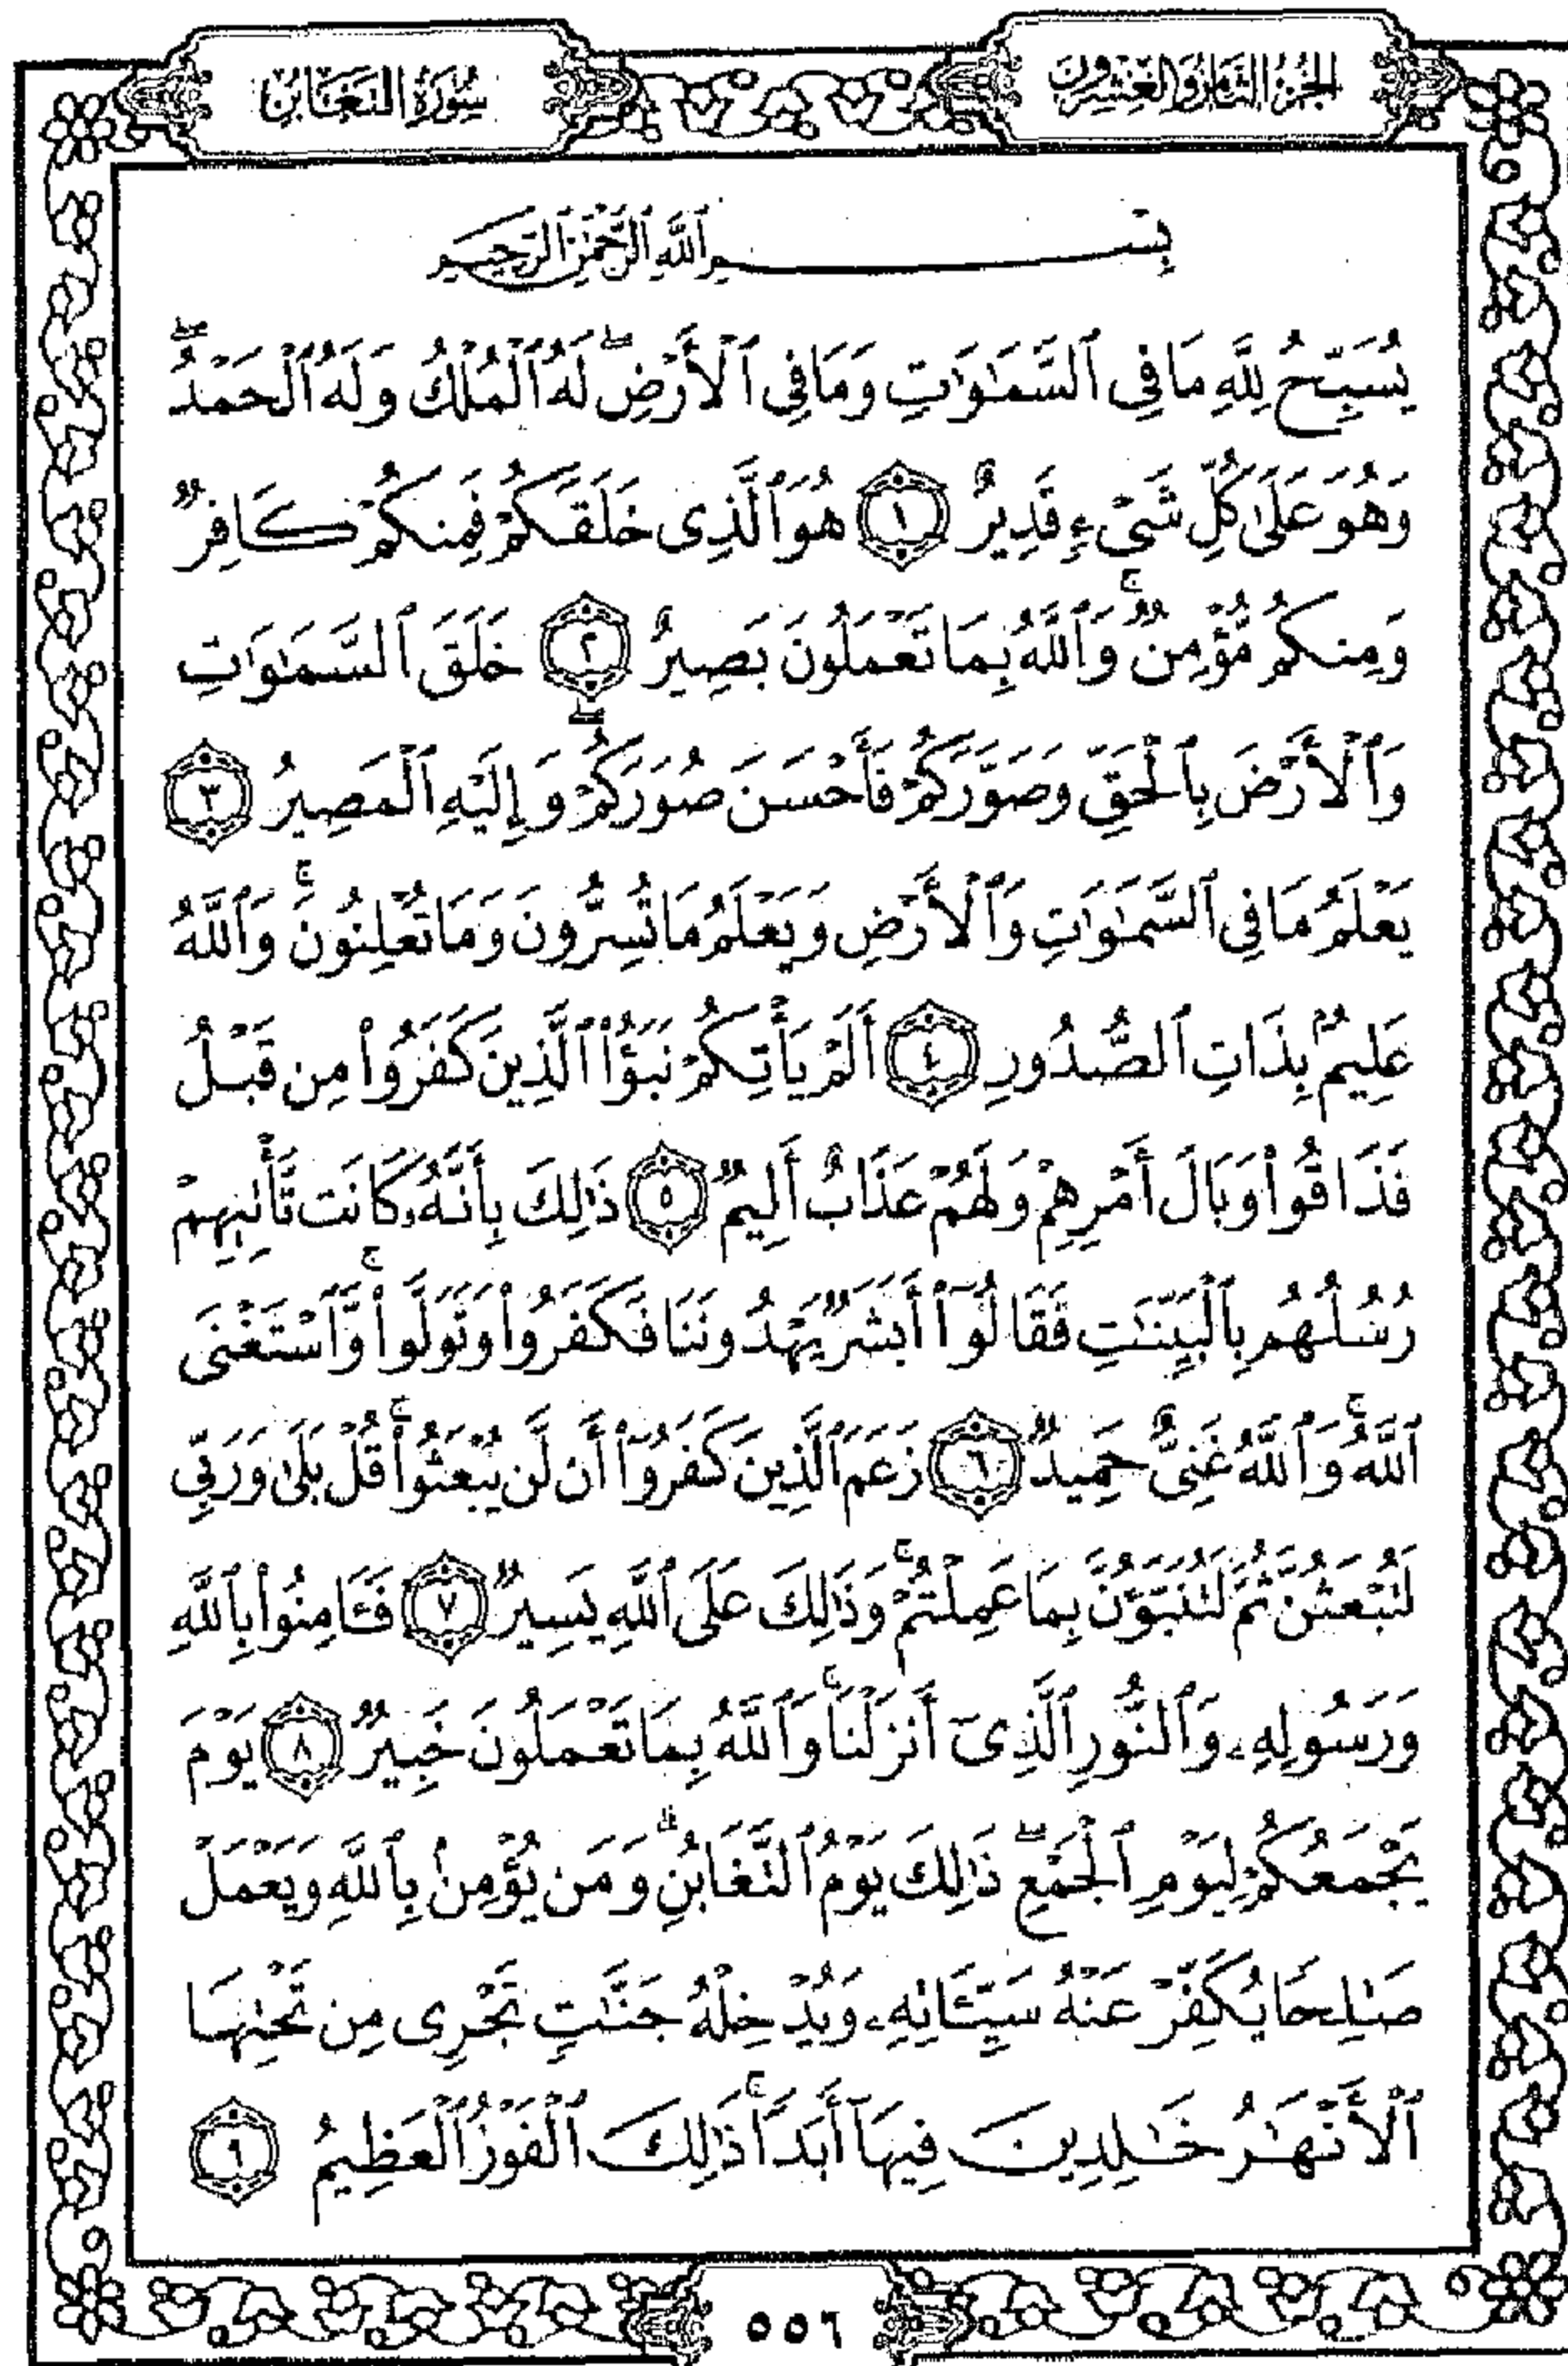 الجزء الثامن والعشرون
سورة التغابن
بِسْمِ ٱللَّهِ ٱلرَّحْمَٰنِ ٱلرَّحِيمِ
يُسَبِّحُ لِلَّهِ مَا فِى ٱلسَّمَٰوَٰتِ وَمَا فِى ٱلْأَرْضِ ۖ لَهُ ٱلْمُلْكُ وَلَهُ ٱلْحَمْدُ ۖ
وَهُوَ عَلَىٰ كُلِّ شَىْءٍ قَدِيرٌ ١ هُوَ ٱلَّذِى خَلَقَكُمْ فَمِنكُمْ كَافِرٌ
وَمِنكُم مُّؤْمِنٌ ۚ وَٱللَّهُ بِمَا تَعْمَلُونَ بَصِيرٌ ٢ خَلَقَ ٱلسَّمَٰوَٰتِ
وَٱلْأَرْضَ بِٱلْحَقِّ وَصَوَّرَكُمْ فَأَحْسَنَ صُوَرَكُمْ ۖ وَإِلَيْهِ ٱلْمَصِيرُ ٣
يَعْلَمُ مَا فِى ٱلسَّمَٰوَٰتِ وَٱلْأَرْضِ وَيَعْلَمُ مَا تُسِرُّونَ وَمَا تُعْلِنُونَ ۚ وَٱللَّهُ
عَلِيمٌۢ بِذَاتِ ٱلصُّدُورِ ٤ أَلَمْ يَأْتِكُمْ نَبَؤُا۟ ٱلَّذِينَ كَفَرُوا۟ مِن قَبْلُ
فَذَاقُوا۟ وَبَالَ أَمْرِهِمْ وَلَهُمْ عَذَابٌ أَلِيمٌ ٥ ذَٰلِكَ بِأَنَّهُۥ كَانَت تَّأْتِيهِمْ
رُسُلُهُم بِٱلْبَيِّنَٰتِ فَقَالُوٓا۟ أَبَشَرٌ يَهْدُونَنَا فَكَفَرُوا۟ وَتَوَلَّوا۟ ۚ وَّٱسْتَغْنَى
ٱللَّهُ ۚ وَٱللَّهُ غَنِىٌّ حَمِيدٌ ٦ زَعَمَ ٱلَّذِينَ كَفَرُوٓا۟ أَن لَّن يُبْعَثُوا۟ ۚ قُلْ بَلَىٰ وَرَبِّى
لَتُبْعَثُنَّ ثُمَّ لَتُنَبَّؤُنَّ بِمَا عَمِلْتُمْ ۚ وَذَٰلِكَ عَلَى ٱللَّهِ يَسِيرٌ ٧ فَـَٔامِنُوا۟ بِٱللَّهِ
وَرَسُولِهِۦ وَٱلنُّورِ ٱلَّذِىٓ أَنزَلْنَا ۚ وَٱللَّهُ بِمَا تَعْمَلُونَ خَبِيرٌ ٨ يَوْمَ
يَجْمَعُكُمْ لِيَوْمِ ٱلْجَمْعِ ۖ ذَٰلِكَ يَوْمُ ٱلتَّغَابُنِ ۗ وَمَن يُؤْمِنۢ بِٱللَّهِ وَيَعْمَلْ
صَٰلِحًا يُكَفِّرْ عَنْهُ سَيِّـَٔاتِهِۦ وَيُدْخِلْهُ جَنَّٰتٍ تَجْرِى مِن تَحْتِهَا
ٱلْأَنْهَٰرُ خَٰلِدِينَ فِيهَآ أَبَدًا ۚ ذَٰلِكَ ٱلْفَوْزُ ٱلْعَظِيمُ ٩
٥٥٦